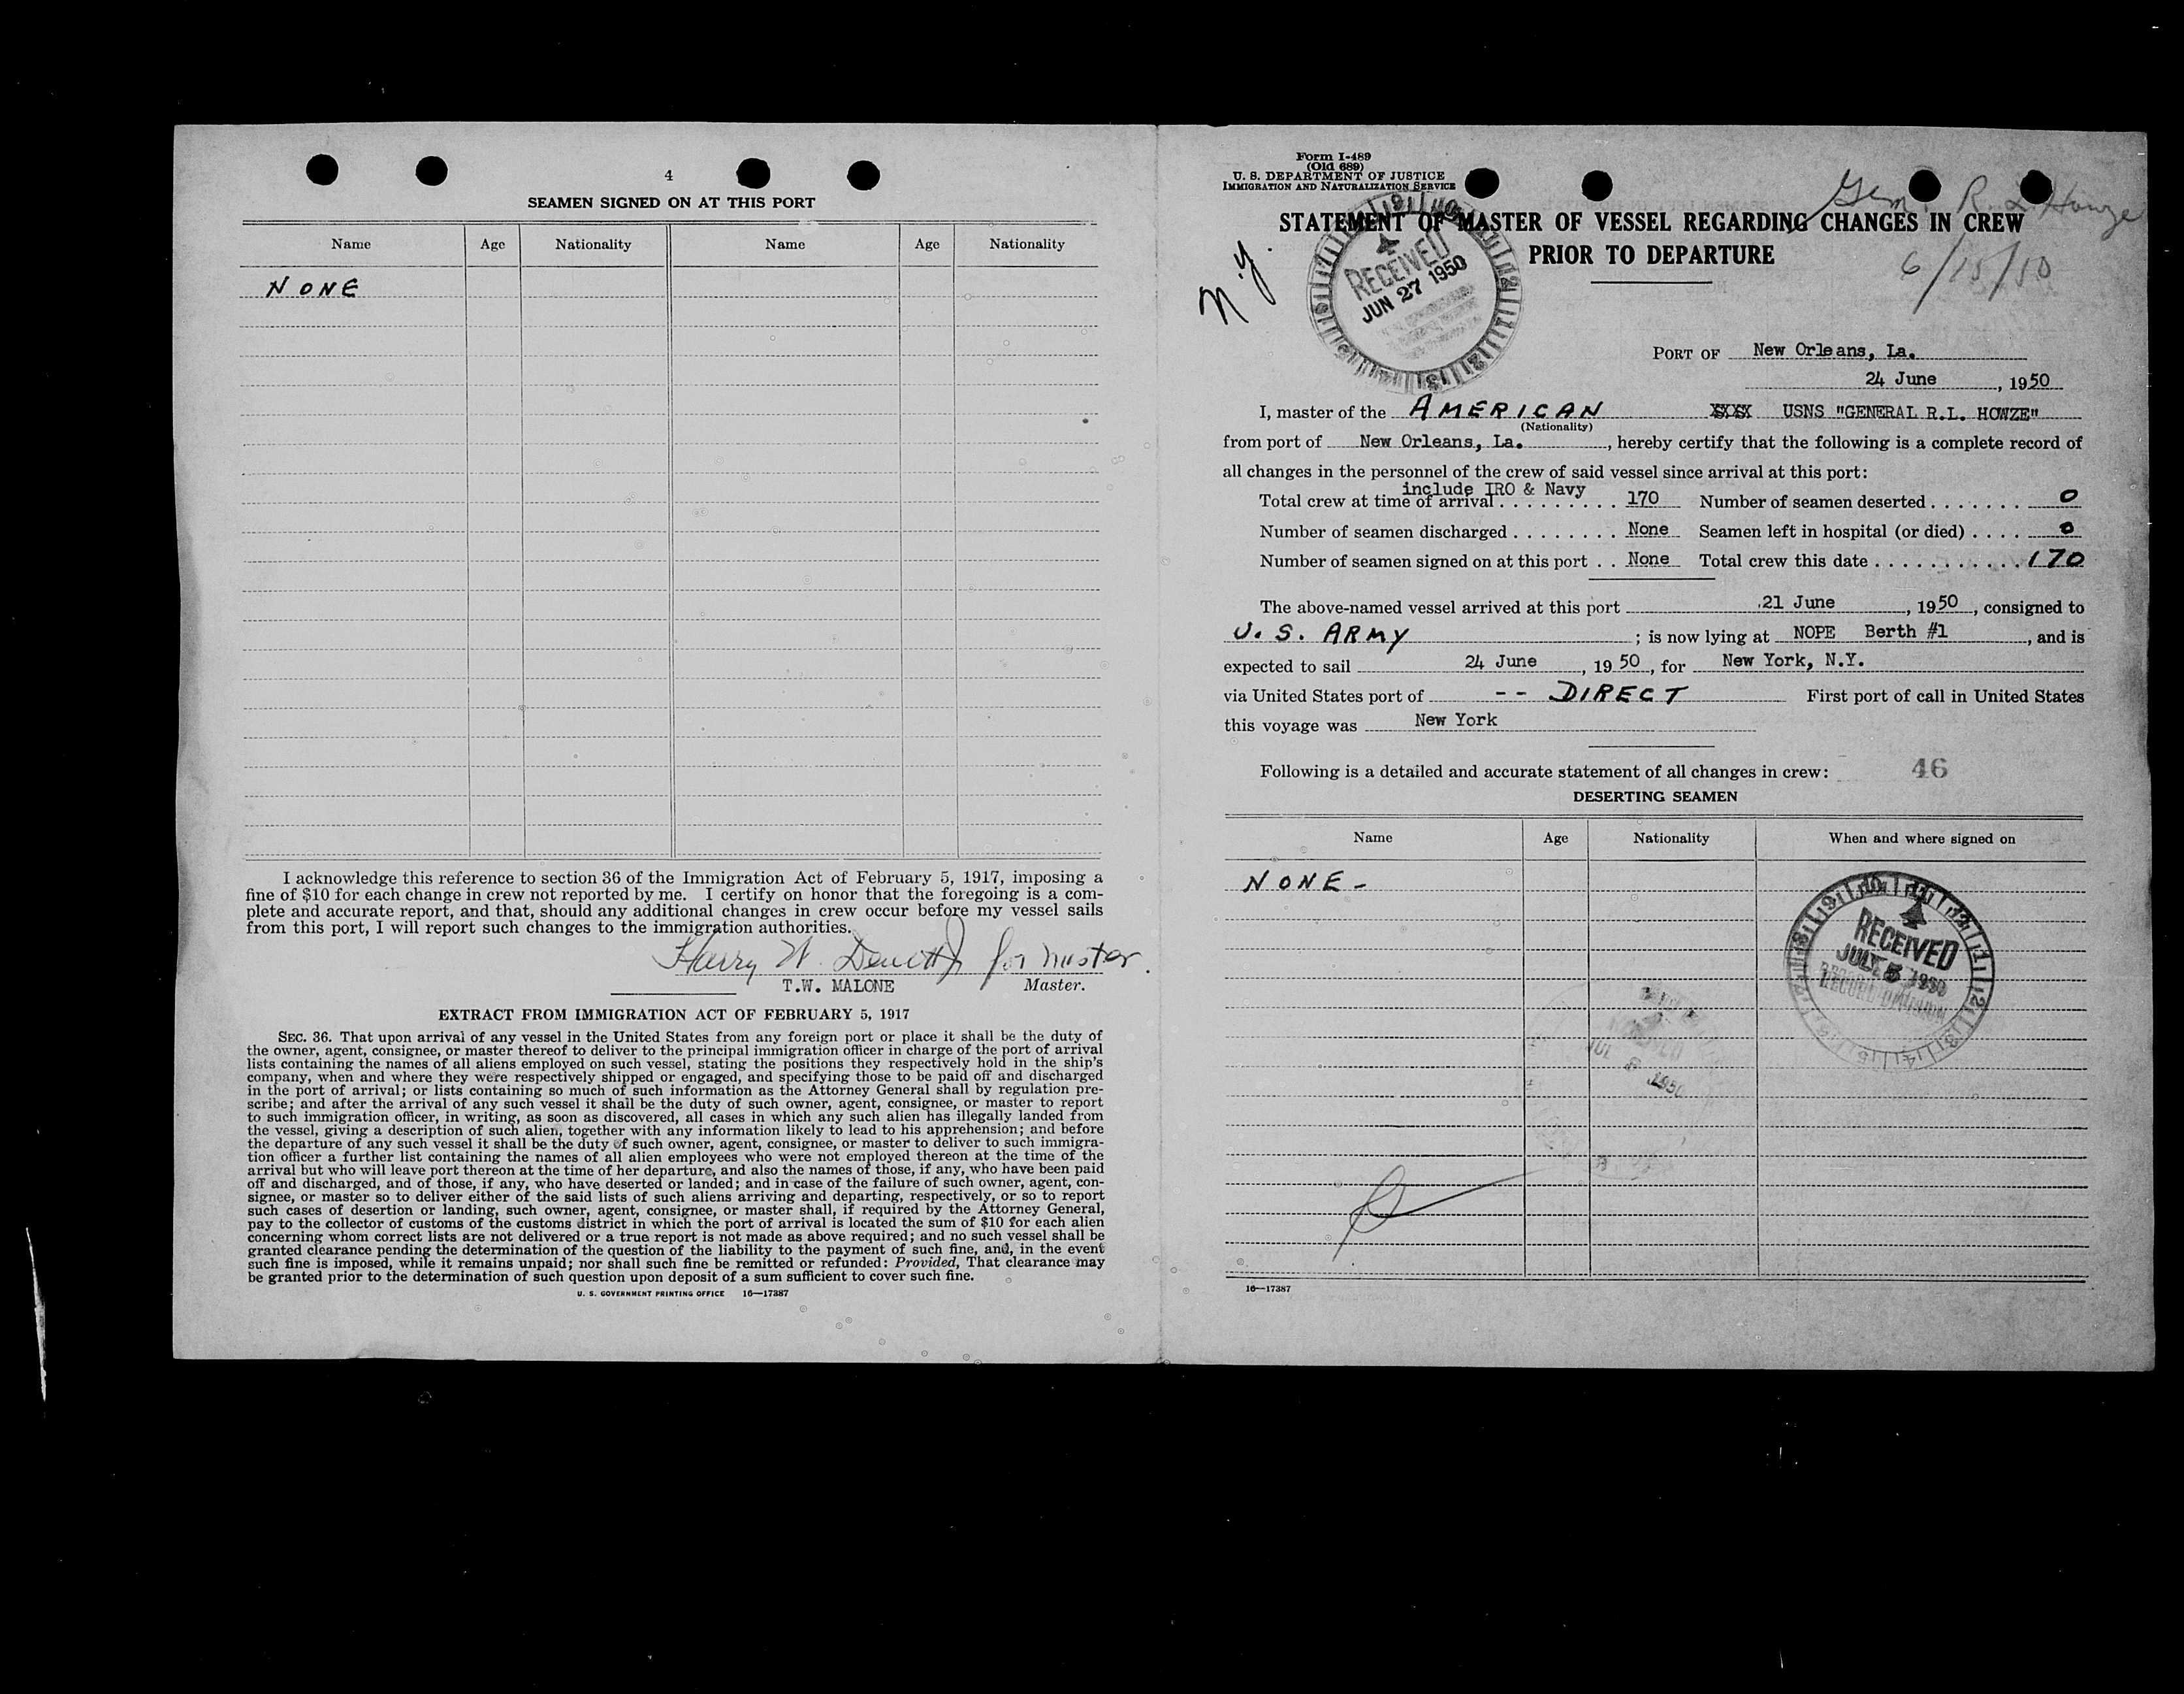 4
SEAMEN SIGNED ON AT THIS PORT
Name Age Nationality Name Age Nationality
NONE
I acknowledge this reference to section 36 of the Immigration Act of February 5, 1917, imposing a
fine of $10 for each change in crew not reported by me. I certify on honor that the foregoing is a com-
plete and accurate report, and that, should any additional changes in crew occur before my vessel sails
from this port, I will report such changes to the immigration authorities.
Harry W. for Master.
T.W. MALONE Master.
EXTRACT FROM IMMIGRATION ACT OF FEBRUARY 5, 1917
SEC. 36. That upon arrival of any vessel in the United States from any foreign port or place it shall be the duty of
the owner, agent, consignee, or master thereof to deliver to the principal immigration officer in charge of the port of arrival
lists containing the names of all aliens employed on such vessel, stating the positions they respectively hold in the ship's
company, when and where they were respectively shipped or engaged, and specifying those to be paid off and discharged
in the port of arrival; or lists containing so much of such information as the Attorney General shall by regulation pre-
scribe; and after the arrival of any such vessel it shall be the duty of such owner, agent, consignee, or master to report
to such immigration officer, in writing, as soon as discovered, all cases in which any such alien has illegally landed from
the vessel, giving a description of such alien, together with any information likely to lead to his apprehension; and before
the departure of any such vessel it shall be the duty of such owner, agent, consignee, or master to deliver to such immigra-
tion officer a further list containing the names of all alien employees who were not employed thereon at the time of the
arrival but who will leave port thereon at the time of her departure, and also the names of those, if any, who have been paid
off and discharged, and of those, if any, who have deserted or landed; and in case of the failure of such owner, agent, con-
signee, or master so to deliver either of the said lists of such aliens arriving and departing, respectively, or so to report
such cases of desertion or landing, such owner, agent, consignee, or master shall, if required by the Attorney General,
pay to the collector of customs of the customs district in which the port of arrival is located the sum of $10 for each alien
concerning whom correct lists are not delivered or a true report is not made as above required; and no such vessel shall be
granted clearance pending the determination of the question of the liability to the payment of such fine, and, in the event
such fine is imposed, while it remains unpaid; nor shall such fine be remitted or refunded: Provided, That clearance may
be granted prior to the determination of such question upon deposit of a sum sufficient to cover such fine.
U. S. GOVERNMENT PRINTING OFFICE 16—17387
Form I-489
(Old 689)
U. S. DEPARTMENT OF JUSTICE
IMMIGRATION AND NATURALIZATION SERVICE
Gen. R. L. Howze
STATEMENT OF MASTER OF VESSEL REGARDING CHANGES IN CREW
PRIOR TO DEPARTURE
6/15/50
N.Y.
RECEIVED
JUN 27 1950
PORT OF New Orleans, La.
24 June, 1950
I, master of the AMERICAN XXXX USNS "GENERAL R.L. HOWZE"
(Nationality)
from port of New Orleans, La., hereby certify that the following is a complete record of
all changes in the personnel of the crew of said vessel since arrival at this port:
include IRO & Navy
Total crew at time of arrival . . . . . . . . . 170 Number of seamen deserted . . . . . . . 0
Number of seamen discharged . . . . . . . . None Seamen left in hospital (or died) . . . . 0
Number of seamen signed on at this port . . None Total crew this date . . . . . . . . . . . 170
The above-named vessel arrived at this port 21 June, 1950, consigned to
U. S. ARMY; is now lying at NOPE Berth #1, and is
expected to sail 24 June, 1950, for New York, N.Y.
via United States port of -- DIRECT First port of call in United States
this voyage was New York
Following is a detailed and accurate statement of all changes in crew: 46
DESERTING SEAMEN
Name Age Nationality When and where signed on
NONE -
RECEIVED
JULY 5 1950
RECORD DIVISION
JUL 1950
16—17387